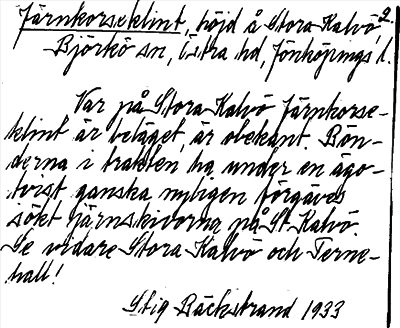 Järnkorseklint, höjd å Stora Kalvö, 2.
Björkö sn, Östra hd, Jönköpings l.
Var på Stora Kalvö Järnkorse-
klint är beläget, är obekant. Bön-
derna i trakten ha under en ägo-
tvist ganska nyligen förgäves
sökt järnskivorna på St. Kalvö.
Se vidare Stora Kalvö och Terne-
hall!
Stig Bäckstrand 1933